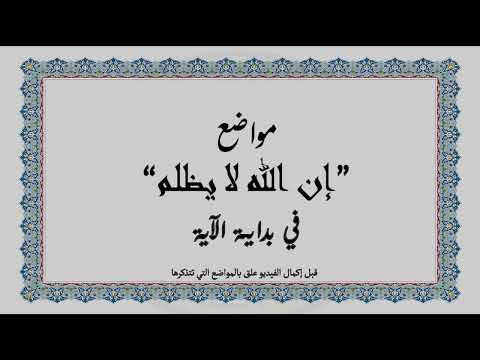 مواضع
”إن الله لا يظلم“
في بداية الآية
قبل إكمال الفيديو علق بالمواضع التي تتذكرها